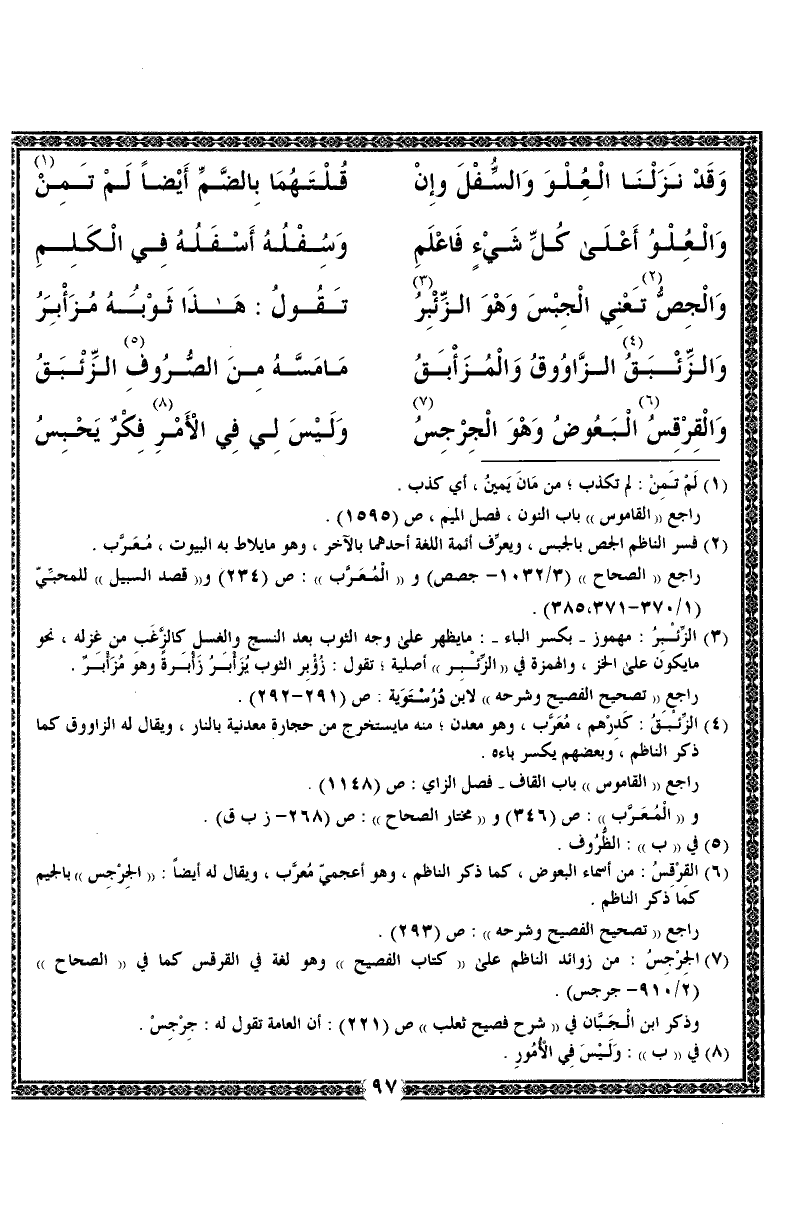 وَقَدْ نَزَلْنَا الْعُلْوَ وَالسُّفْلَ وإِنْ قُلْتَهُمَا بِالضَّمِّ أَيْضاً لَمْ تَمِنْ (١)
وَالْعُلْوُ أَعْلَىٰ كُلِّ شَيْءٍ فَاعْلَمِ وَسُفْلُهُ أَسْفَلُهُ فِي الْكَلِمِ
وَالْجِصُّ (٢) تَعْنِي الْجِبْسَ وَهْوَ الزِّئْبِرُ (٣) تَقُولُ : هَٰذَا ثَوْبُهُ مُزَأْبَرُ
وَالزِّئْبَقُ (٤) الزَّاوُوقُ وَالْمُزَأْبَقُ مَامَسَّهُ مِنَ الصُّرُوفِ (٥) الزِّئْبَقُ
وَالْقِرْقِسُ (٦) الْبَعُوضُ وَهْوَ الْجِرْجِسُ (٧) وَلَيْسَ لِي فِي الْأَمْرِ (٨) فِكْرٌ يَحْبِسُ
(١) لَمْ تَمِنْ : لم تكذب ؛ من مَانَ يَمِينُ ، أي كذب .
راجع « القاموس » باب النون ، فصل الميم ، ص (١٥٩٥) .
(٢) فسر الناظم الجص بالجبس ، ويعرِّف أئمة اللغة أحدهما بالآخر ، وهو مايلاط به البيوت ، مُعَرَّب .
راجع « الصحاح » (٣/١٠٣٢- جصص) و « الْمُعَرَّب » : ص (٢٣٤) و« قصد السبيل » للمحبّيّ
(١/٣٧٠-٣٧١،٣٨٥) .
(٣) الزِّئْبِرُ : مهموز ـ بكسر الباء ـ : مايظهر علىٰ وجه الثوب بعد النسج والغسل كالزَّغَب من غزله ، نحو
مايكون علىٰ الخز ، والهمزة في « الزِّئْبِر » أصلية ؛ تقول : زُؤْبِر الثوب يُزَأْبَرُ زَأْبَرةً وهو مُزَأْبَرٌ .
راجع « تصحيح الفصيح وشرحه » لابن دُرُسْتَوَية : ص (٢٩١-٢٩٢) .
(٤) الزِّئْبَقُ : كَدِرْهم ، مُعَرَّب ، وهو معدن ؛ منه مايستخرج من حجارة معدنية بالنار ، ويقال له الزاووق كما
ذكر الناظم ، وبعضهم يكسر باءه .
راجع « القاموس » باب القاف ـ فصل الزاي : ص (١١٤٨) .
و « الْمُعَرَّب » : ص (٣٤٦) و « مختار الصحاح » : ص (٢٦٨- ز ب ق) .
(٥) في « ب » : الظُّرُوف .
(٦) القِرْقسُ : من أسماء البعوض ، كما ذكر الناظم ، وهو أعجميّ مُعرَّب ، ويقال له أيضاً : « الجِرْجس » بالجيم
كما ذكر الناظم .
راجع « تصحيح الفصيح وشرحه » : ص (٢٩٣) .
(٧) الجِرْجِسُ : من زوائد الناظم علىٰ « كتاب الفصيح » وهو لغة في القرقس كما في « الصحاح »
(٢/٩١٠- جرجس) .
وذكر ابن الْجَبَّان في « شرح فصيح ثعلب » ص (٢٢١) : أن العامة تقول له : جِرْجِسْ .
(٨) في « ب » : وَلَيْسَ فِي الْأُمُورِ .
٩٧